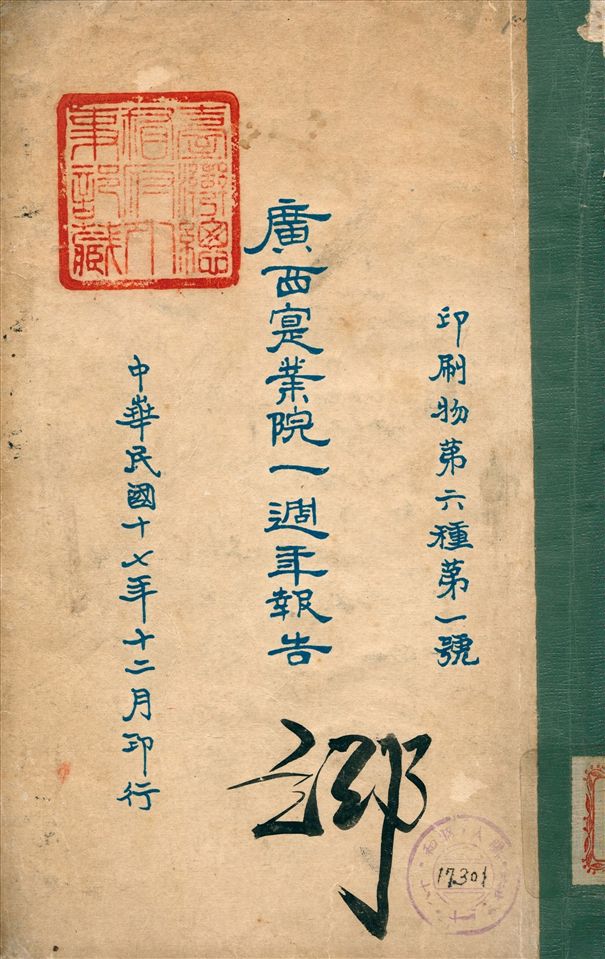 印刷物第六種第一號
廣西寔業院一週年報告
中華民國十七年十二月印行
臺灣總
督府外
事部藏
17301